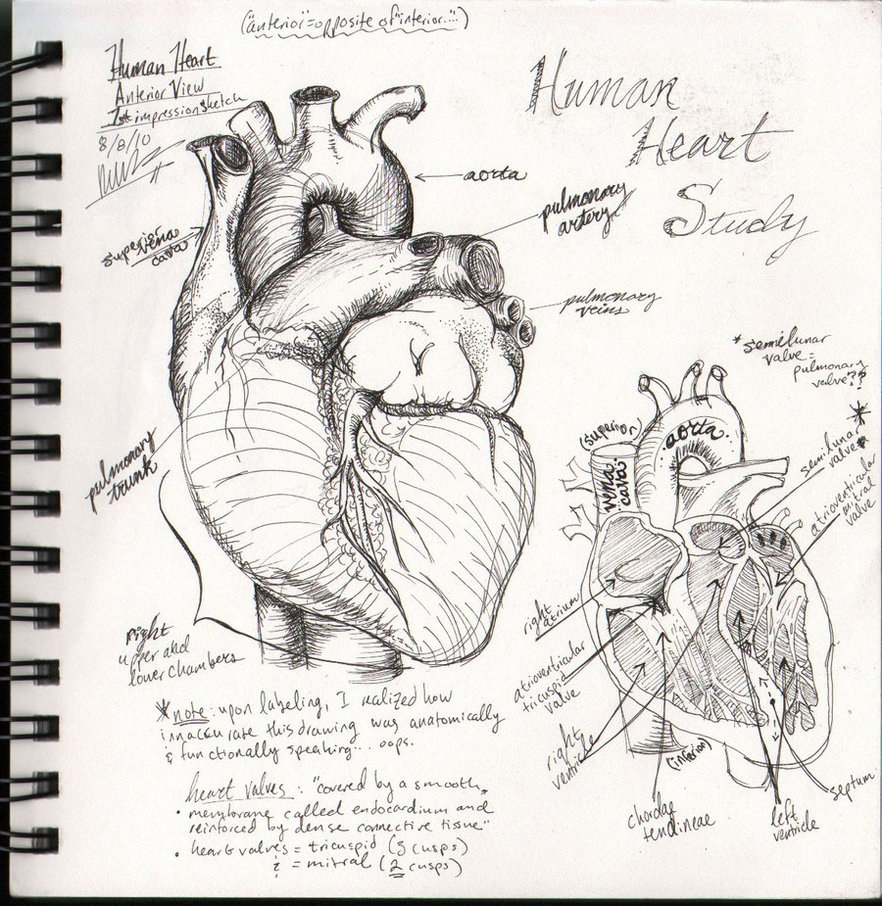 ("anterior"=opposite of "interior...")
Human Heart
Anterior View
1st impression sketch
8/8/10
Human
Heart
Study
aorta
pulmonary
artery
superior vena
cava
pulmonary
veins
pulmonary
trunk
right
upper and
lower chambers
*note: upon labeling, I realized how
innaccurate this drawing was anatomically
& functionally speaking... oops.
heart valves: "covered by a smooth
• membrane called endocardium and
reinforced by dense connective tissue"
• heart valves = tricuspid (3 cusps)
& = mitral (2 cusps)
*semilunar
valve =
pulmonary
valve??
semilunar
valve
atrioventricular
mitral
valve
(superior)
vena
cava
aorta
right
atrium
atrioventricular
tricuspid
valve
right
ventricle
(inferior)
chordae
tendineae
left
ventricle
septum